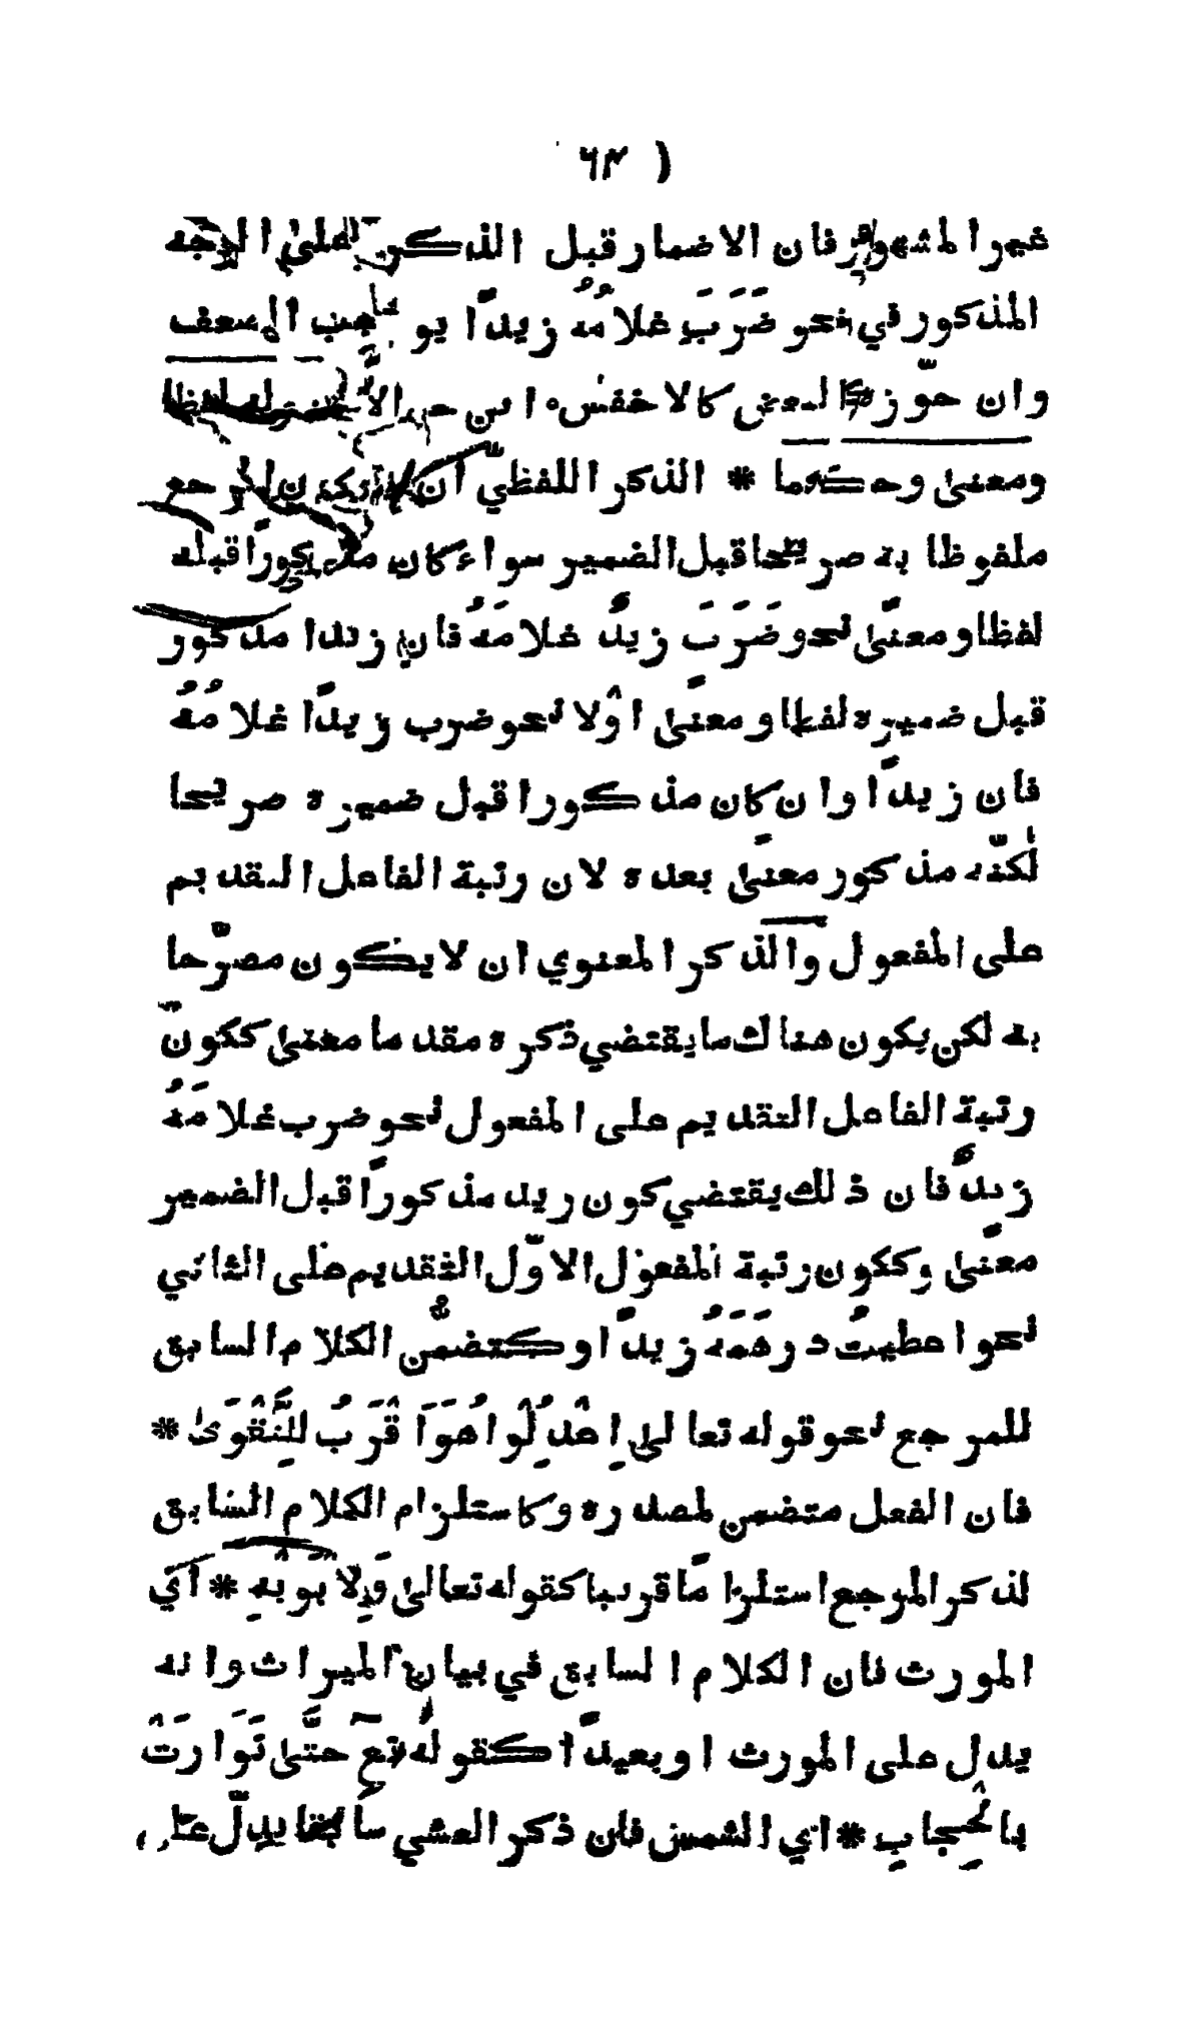 ( ٦٣
غير المشهور فان الاضمار قبل الذكر على الوجه
المذكور في نحو ضَرَبَ غلامُهُ زيدًا يوجب الضعف
وان جوّزه البعض كالاخفش وابن جني الّا لفظا
ومعنىً وحكما * الذكر اللفظيّ ان يكون المرجع
ملفوظا به صريحا قبل الضمير سواء كان مذكورًا قبله
لفظا ومعنىً نحو ضَرَبَ زيدٌ غلامَهُ فان زيدا مذكور
قبل ضميره لفظا ومعنىً اوْلا نحو ضرب زيدًا غلامُهُ
فان زيدًا وان كان مذكورا قبل ضميره صريحا
لٰكنّه مذكور معنىً بعده لان رتبة الفاعل التقديم
على المفعول والذكر المعنوي ان لا يكون مصرّحا
به لكن يكون هناك ما يقتضي ذكره مقدما معنىً ككون
رتبة الفاعل التقديم على المفعول نحو ضرب غلامَهُ
زيدٌ فان ذلك يقتضي كون زيد مذكورًا قبل الضمير
معنىً وككون رتبة المفعول الاوّل التقديم على الثاني
نحو اعطيتُ درهَمَهُ زيدًا وكتضمُّن الكلام السابق
للمرجع نحو قوله تعالى اِعْدِلُوْا هُوَ اَقْرَبُ لِلتَّقْوَىٰ *
فان الفعل متضمن لمصدره وكاستلزام الكلام السابق
لذكر المرجع استلزاما قريبا كقوله تعالىٰ وَلِاَبَوَيْهِ * اي
المورث فان الكلام السابق في بيان الميراث وانه
يدل على المورث او بعيدًا كقوله تع حَتّٰى تَوَارَتْ
بالْحِجابِ * اي الشمس فان ذكر العشي سابقا يدلّ